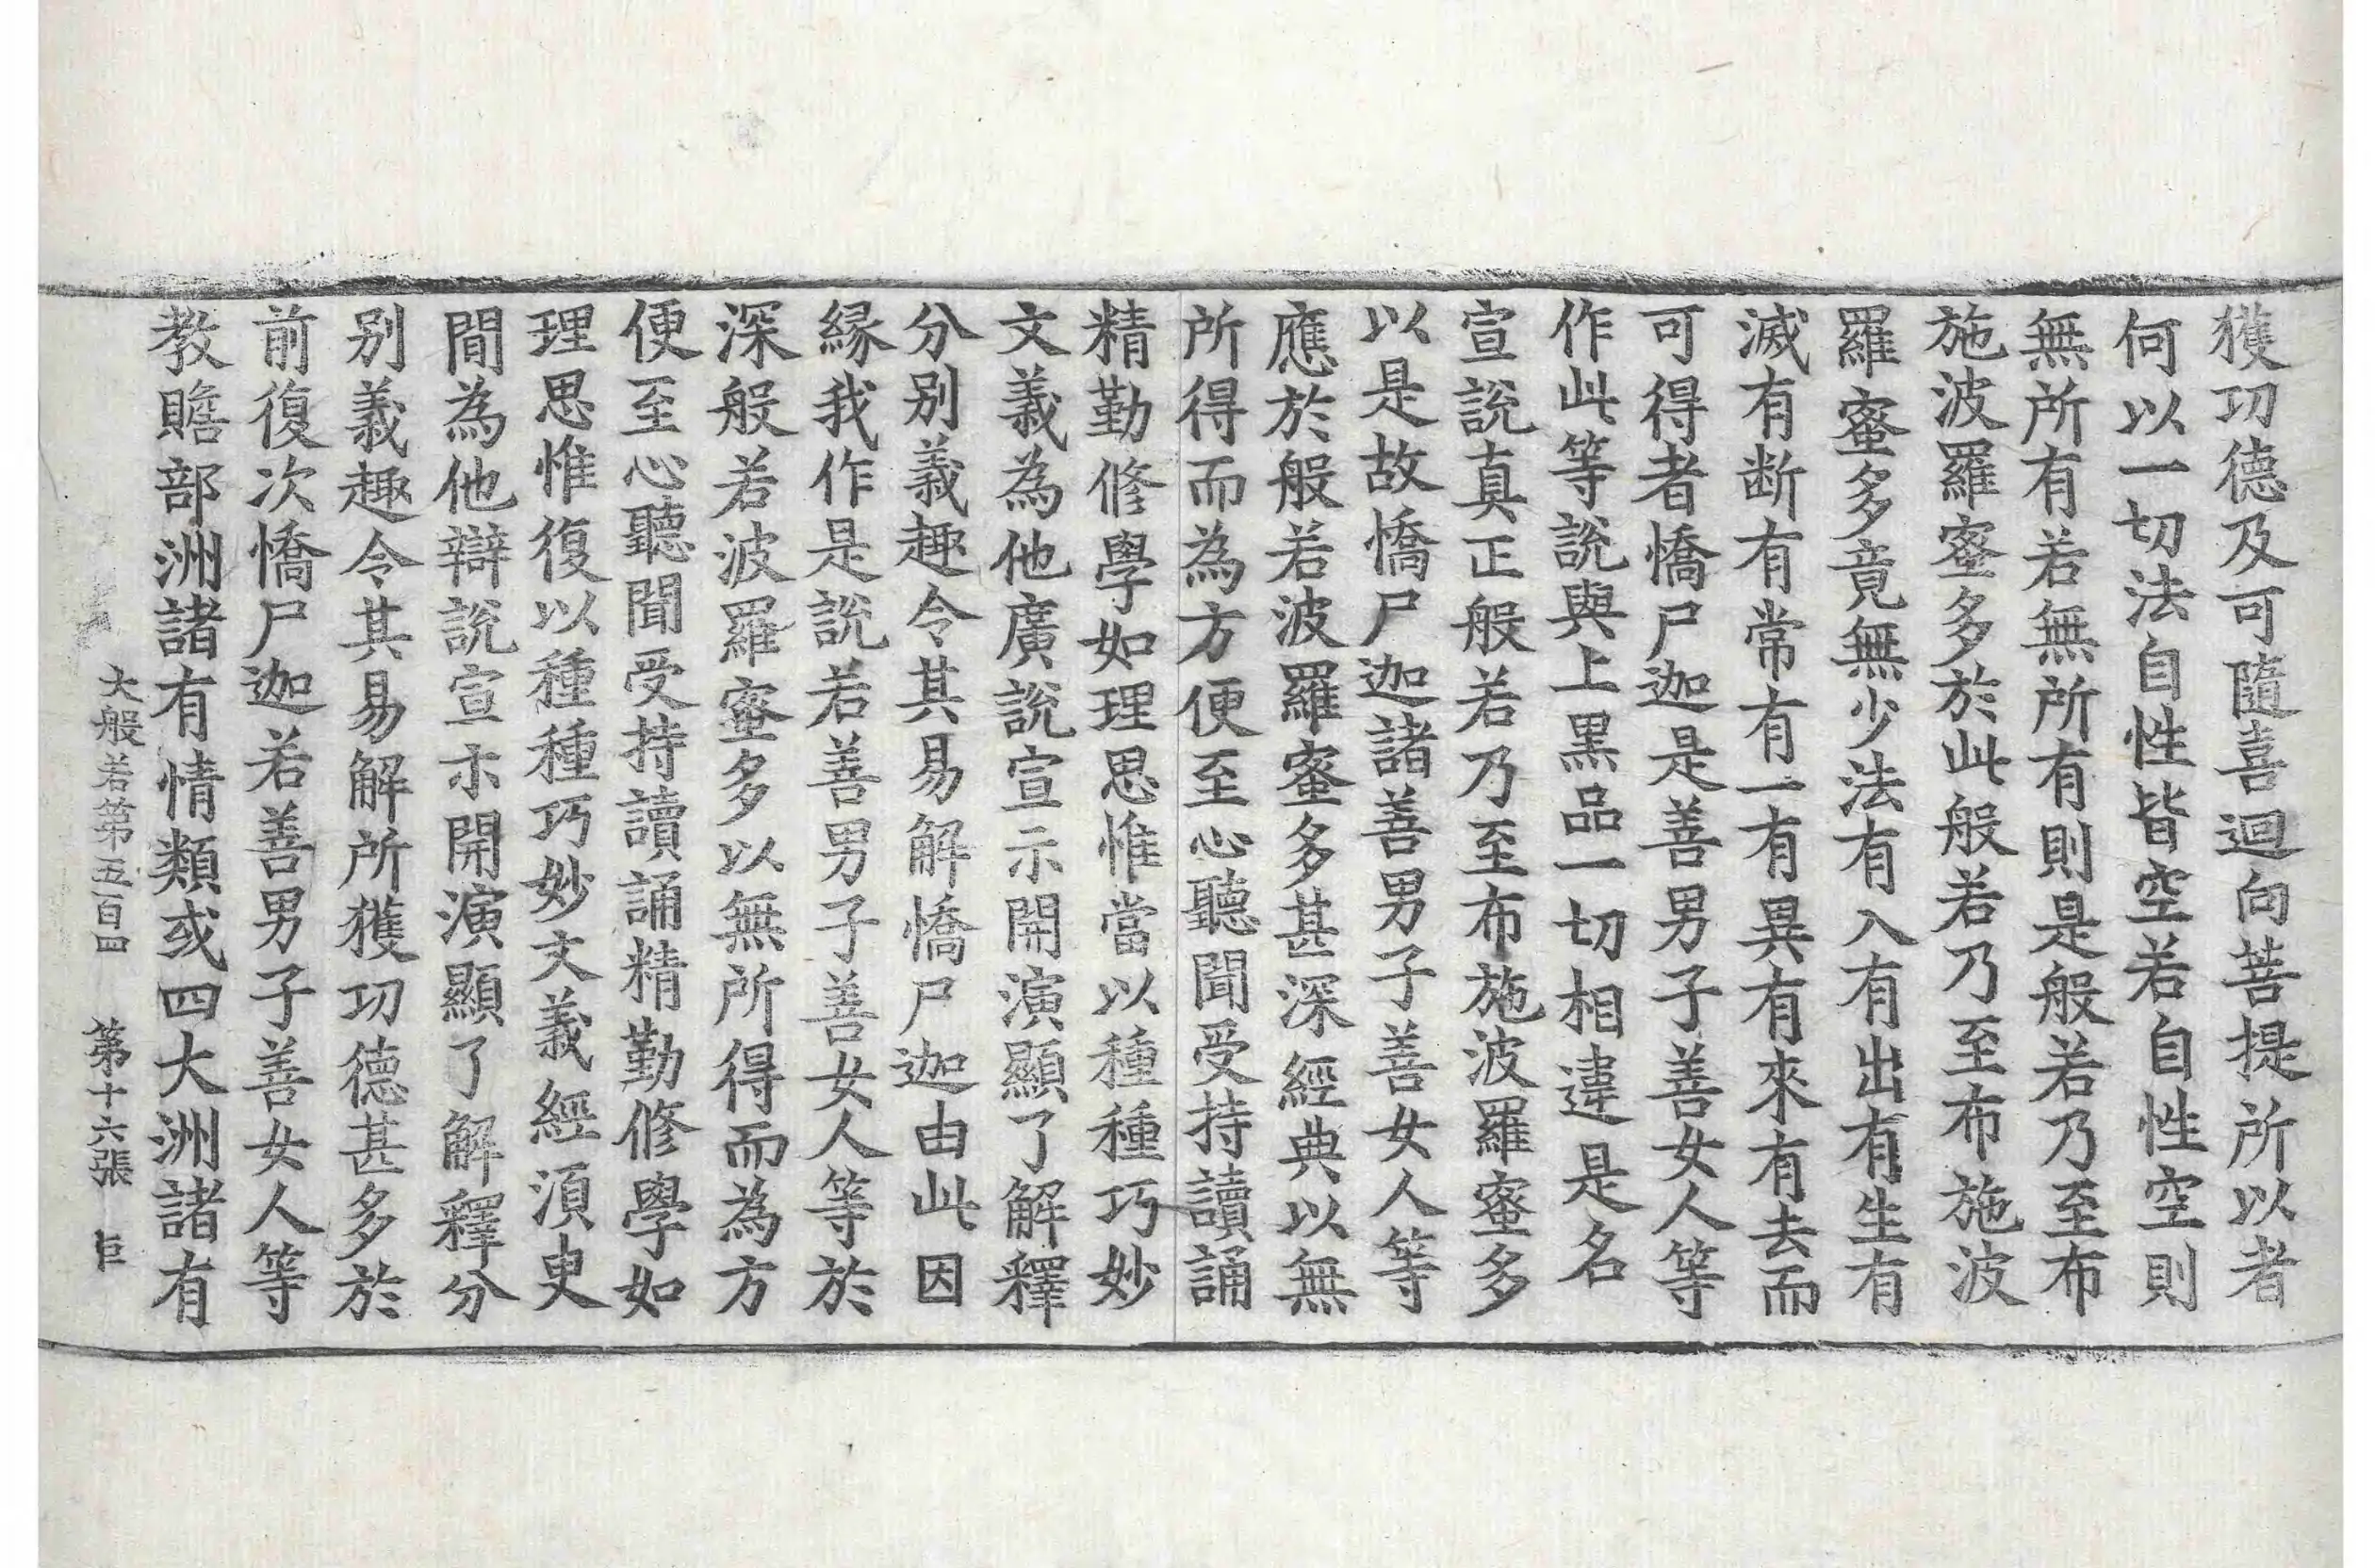 獲功德及可隨喜迴向菩提所以者
何以一切法自性皆空若自性空則
無所有若無所有則是般若乃至布
施波羅蜜多於此般若乃至布施波
羅蜜多竟無少法有入有出有生有
滅有断有常有一有異有來有去而
可得者憍尸迦是善男子善女人等
作此等說與上黑品一切相違是名
宣說真正般若乃至布施波羅蜜多
以是故憍尸迦諸善男子善女人等
應於般若波羅蜜多甚深經典以無
所得而為方便至心聽聞受持讀誦
精勤修學如理思惟當以種種巧妙
文義為他廣說宣示開演顯了解釋
分别義趣令其易解憍尸迦由此因
緣我作是說若善男子善女人等於
深般若波羅蜜多以無所得而為方
便至心聽聞受持讀誦精勤修學如
理思惟復以種種巧妙文義經須臾
間為他辯說宣示開演顯了解釋分
别義趣令其易解所獲功德甚多於
前復次憍尸迦若善男子善女人等
教贍部洲諸有情類或四大洲諸有
大般若第五百四 第十六張 巨